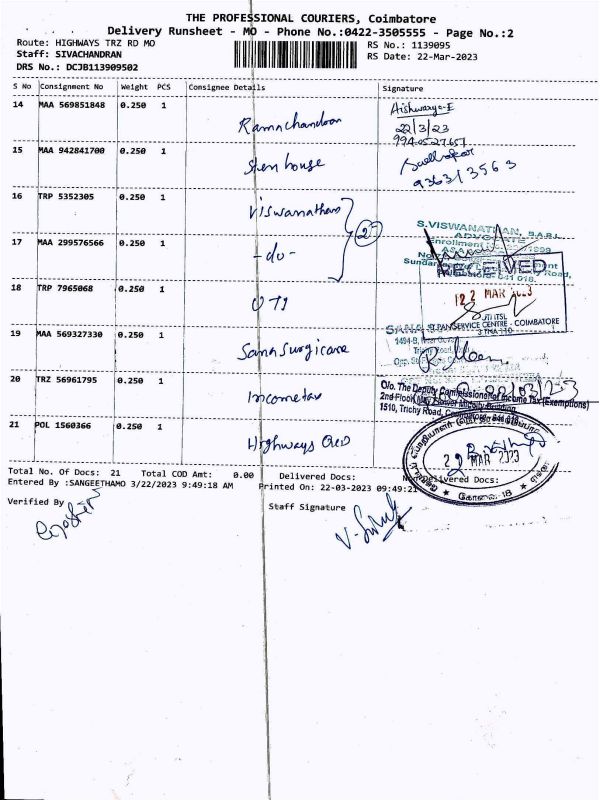 THE PROFESSIONAL COURIERS, Coimbatore
Delivery Runsheet - MO - Phone No.:0422-3505555 - Page No.:2
Route: HIGHWAYS TRZ RD MO
RS No.: 1139095
Staff: SIVACHANDRAN
RS Date: 22-Mar-2023
DRS No.: DCJB113909502
S No Consignment No Weight PCS Consignee Details Signature
14 MAA 569851848 0.250 1 Ramachandran Aishwarya.E
22/3/23
15 MAA 942841700 0.250 1 Sten house
936313563
16 TRP 5352305 0.250 1 Viswanathan
2
S.VISWANATHAN, B.A.B.L.
ADVOCATE
17 MAA 299576566 0.250 1 -do-
RECEIVED
18 TRP 7965068 0.250 1 UTI
22 MAR 2023
UTIITSL
PAN SERVICE CENTRE - COIMBATORE
19 MAA 569327330 0.250 1 Sana Surgicare
20 TRZ 56961795 0.250 1 Incometax
O/o. The Deputy Commissioner of Income Tax (Exemptions)
2nd Floor,
1510, Trichy Road,
21 POL 1560366 0.250 1 Highways
22 MAR 2023
கோவை-18
Total No. Of Docs: 21 Total COD Amt: 0.00 Delivered Docs: Non Delivered Docs:
Entered By :SANGEETHAMO 3/22/2023 9:49:18 AM Printed On: 22-03-2023 09:49:21
Verified By
Staff Signature